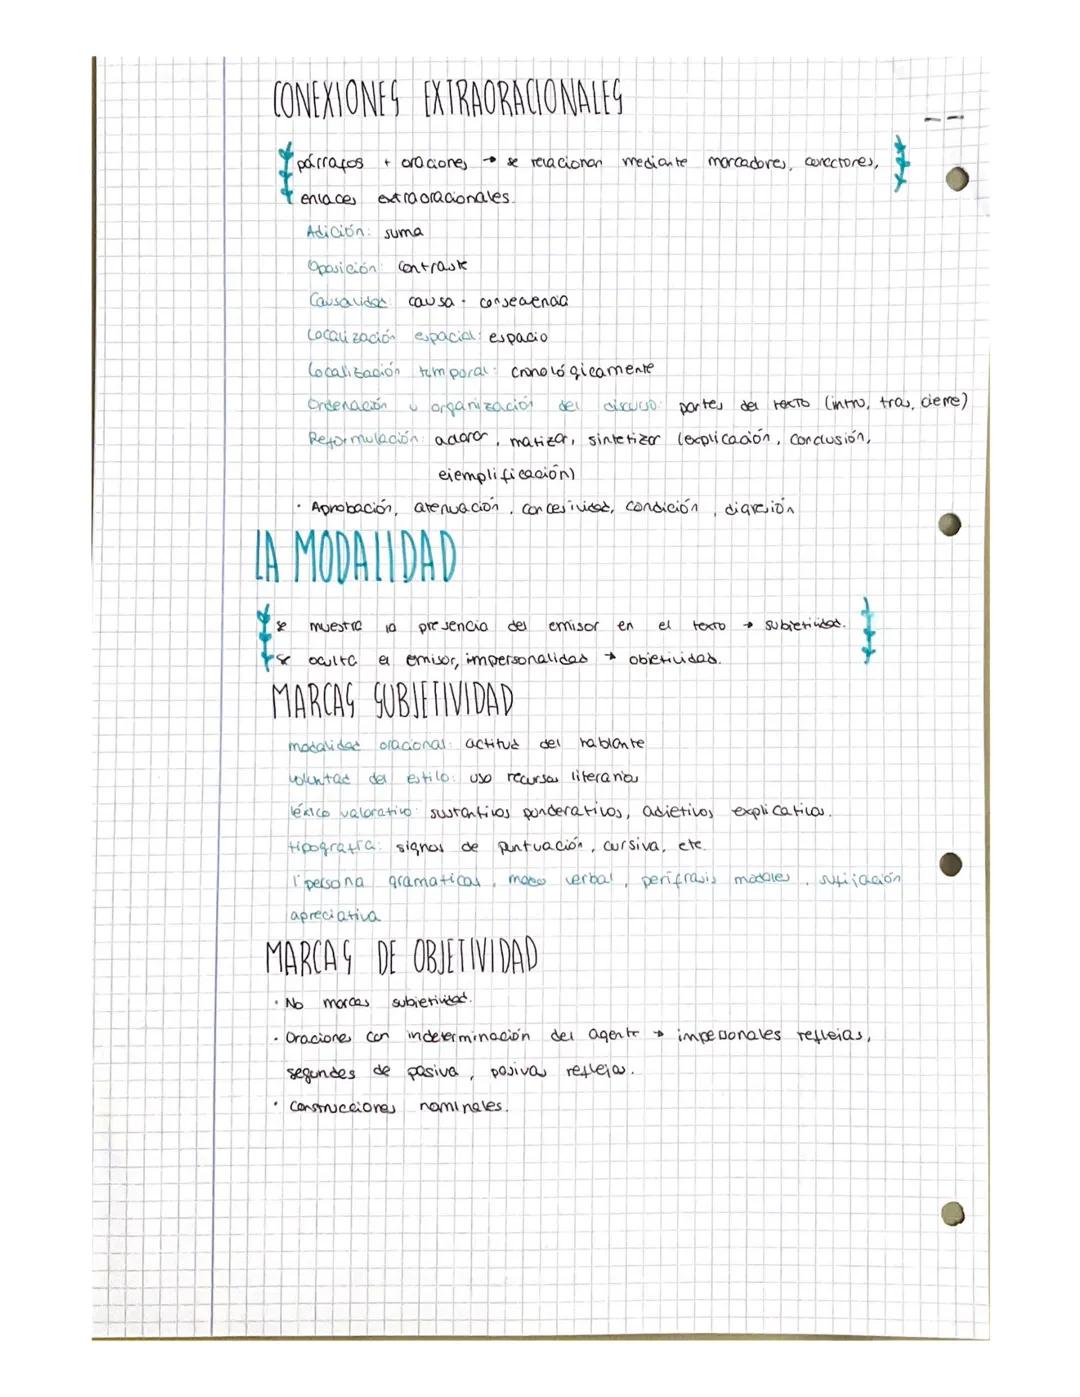 CONEXIONES EXTRAORACIONALES
párrafos + oraciones → se relacionan mediante marcadores, conectores,
enlaces extraoracionales.
Adición: suma
Oposición: contraste
Causalidad: causa - consecuencia
Localización espacial: espacio
Localización temporal: cronológicamente
Ordenación u organización del discurso: partes del texto (intro, tras, cierre)
Reformulación: aclarar, matizar, sintetizar (explicación, conclusión,
ejemplificación)
· Aprobación, atenuación, concesividad, condición, digresión
LA MODALIDAD
se muestra la presencia del emisor en el texto → subjetividad.
se oculta el emisor, impersonalidad → objetividad.
MARCAS SUBJETIVIDAD
modalidad oracional: actitud del hablante
voluntad del estilo: uso recursos literarios
léxico valorativo: sustantivos ponderativos, adjetivos explicativos.
tipografía: signos de puntuación, cursiva, etc.
1ª persona gramatical, modo verbal, perífrasis modales, sufijación
apreciativa
MARCAS DE OBJETIVIDAD
· No marcas subjetividad.
· Oraciones con indeterminación del agente → impersonales reflejas,
segundas de pasiva, pasivas reflejas.
· Construcciones nominales.